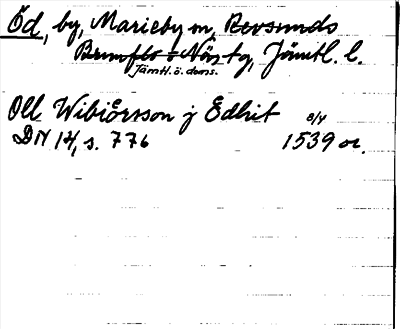 Öd, by, Marieby sn, Revsunds
Brunflo o Näs tg, Jämtl. l.
Jämtl. ö. doms.
Oll Wibiörsson j Edhit
DN 14, s. 776 1539 or.